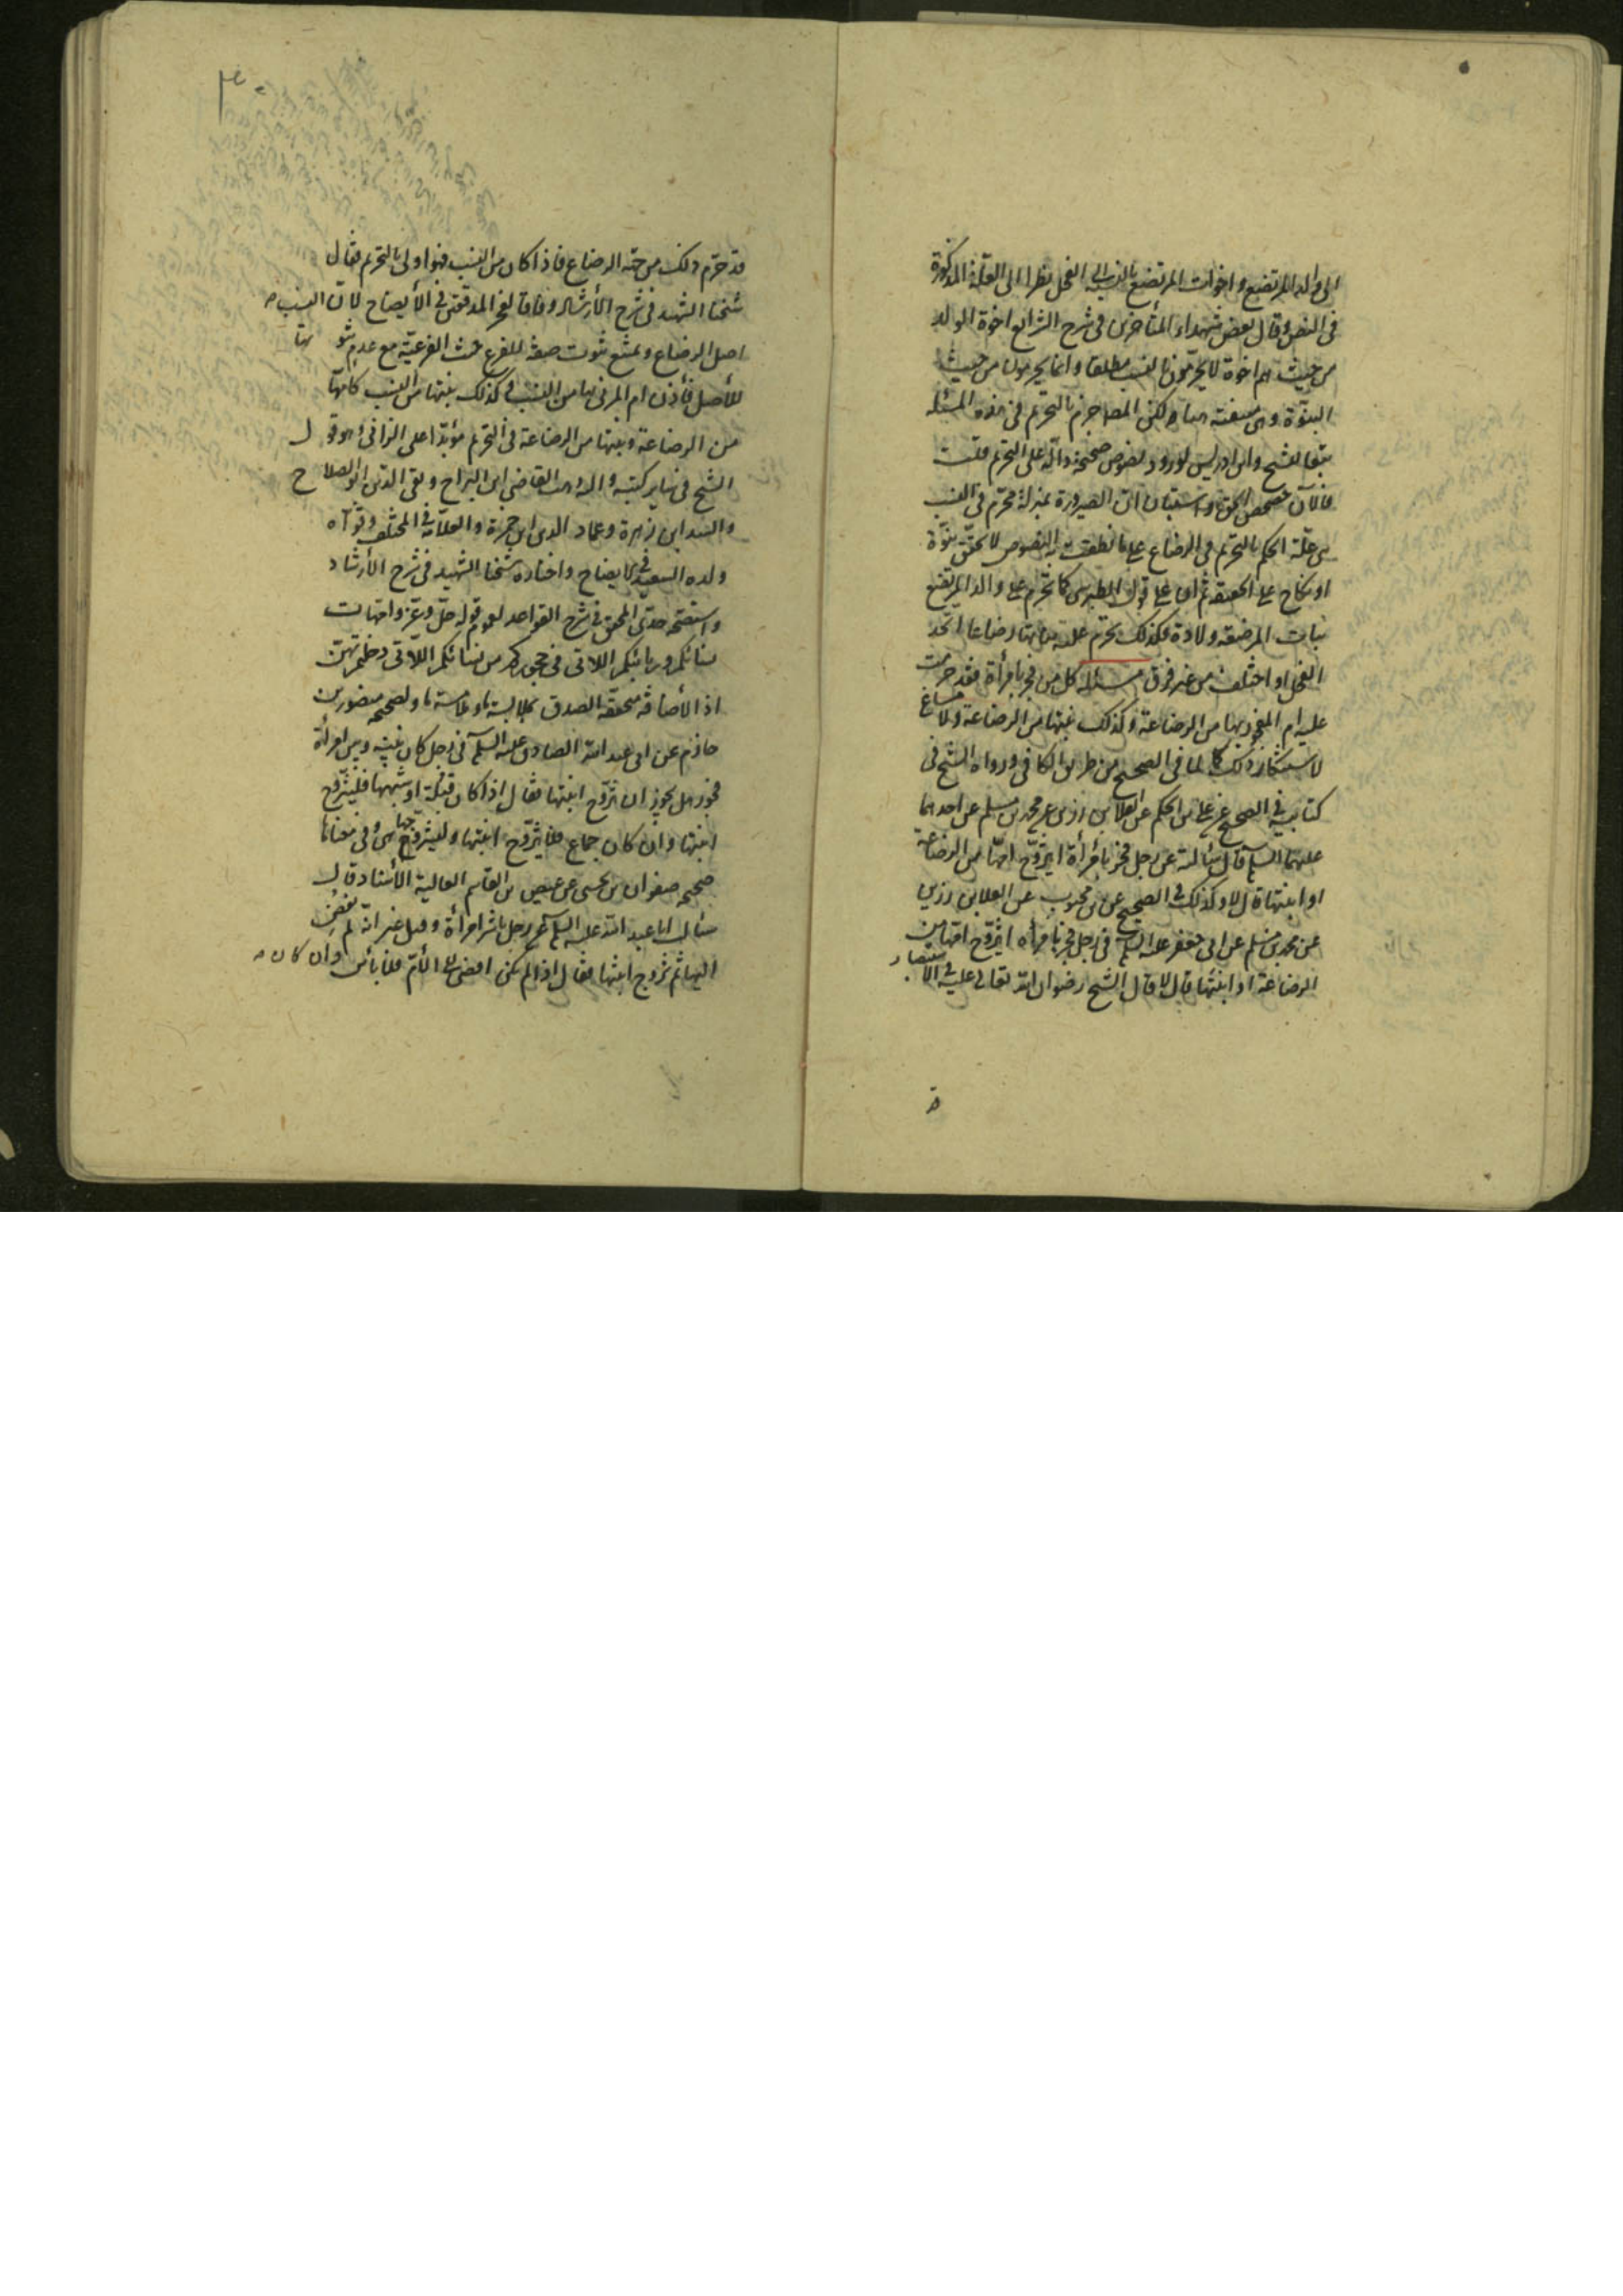 الى والد المرتضع واخوات المرتضع بالنسبة الى الفحل نظرا الى العلة المذكورة
فى النص وقال بعض شهداء المتأخرين فى شرح الشرايع اخوة الولد
من حيث هم اخوة لا يحرمون بالنسب مطلقا وانما يحرمون من حيث
البنوة وهى منفية هنا ولكن المصا جزم بالتحريم فى هذه المسئلة
تبعا للشيخ وابن ادريس لورود نصوص صحيحة دالة على التحريم قلت
فالآن حصحص الحق واستبان ان الصيرورة بمنزلة محرم فى النسب
هى علة الحكم بالتحريم فى الرضاع على ما نطقت به النصوص لا تحقق بنوة
او نكاح على الحقيقة ثم اما على قول الطبرسى كما تحرم على والد المرتضع
بنات المرضعة ولادة فكذلك تحرم عليه بناتها رضاعا اتحد
الفحل او اختلف من غير فرق مسئلة كل من فجر بامرأة فقد حرمت
عليه ام المفجور بها من الرضاعة وكذلك بنتها من الرضاعة ولا مساغ
لاستنكار ذلك لما فى الصحيح من طريق الكافى ورواه الشيخ فى
كتابيه فى الصحيح عن على بن الحكم عن العلا بن رزين عن محمد بن مسلم عن احدهما
عليهما السلم قال سألته عن رجل فجر بامرأة ايتزوج امها من الرضاعة
او ابنتها قال لا وكذلك فى الصحيح عن بن محبوب عن العلا بن رزين
عن محمد بن مسلم عن ابى جعفر عليه السلم فى رجل فجر بامرأة ايتزوج امها من
الرضاعة او ابنتها قال لا قال الشيخ رضوان الله تعالى عليه فى الاستبصار
قد
قد حرم ذلك من جهة الرضاع فاذا كان من النسب فهو اولى بالتحريم فقال
شيخنا الشهيد فى شرح الأرشاد وفاقا لفخر المدققين فى الأيضاح لان النسب
اصل الرضاع ويمتنع ثبوت صفة للفرع من حيث الفرعية مع عدم ثبوتها
للأصل فأذن ام المزنى بها من النسب وكذلك بنتها من النسب كامها
من الرضاعة وبنتها من الرضاعة فى التحريم مؤبدا على الزانى وهو قول
الشيخ فى ساير كتبه واليه ذهب القاضى ابن البراج وتقى الدين ابو الصلاح
والسيد ابن زهرة وعماد الدين ابن حمزة والعلامة فى المختلف وقواه
ولده السعيد فى الايضاح واختاره شيخنا الشهيد فى شرح الأرشاد
واستصحه جدى المحقق فى شرح القواعد لعموم قوله جل وعز وامهات
نسائكم وربائبكم اللاتى فى حجوركم من نسائكم اللاتى دخلتم بهن
اذ الأضافة متحققة الصدق بملابسة ما وملامسة ما ولصحيحة منصور بن
حازم عن ابى عبد الله الصادق عليه السلم فى رجل كان بينه وبين امرأة
فجور هل يجوز ان يتزوج ابنتها فقال اذا كان قبلة او شبهها فليتزوج
ابنتها وان كان جماع فلا يتزوج ابنتها وليتزوجها هى وفى معناها
صحيحة صفوان بن يحيى عن عيص بن القاسم العالية الأسناد قال
سألت ابا عبد الله عليه السلم عن رجل باشر امرأة وقبل غير انه لم يفض
اليها ثم تزوج ابنتها فقال اذا لم يكن افضى الى الأم فلا بأس وان كان